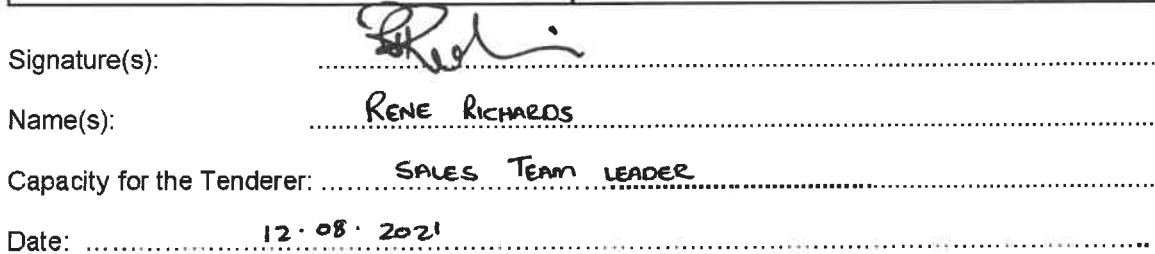 Signature(s):
Name(s): RENE RICHARDS
Capacity for the Tenderer: SALES TEAM LEADER
Date: 12.08.2021